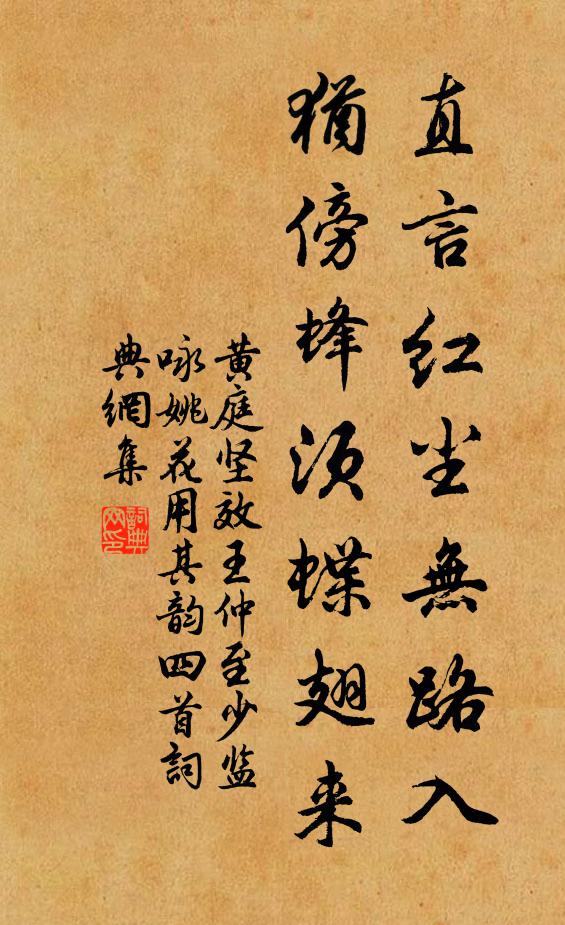 直言红尘無路入
猶傍蜂须蝶翅来
黄庭坚效王仲至少监
咏姚花用其韵四首詞
典網集
詞典
网印